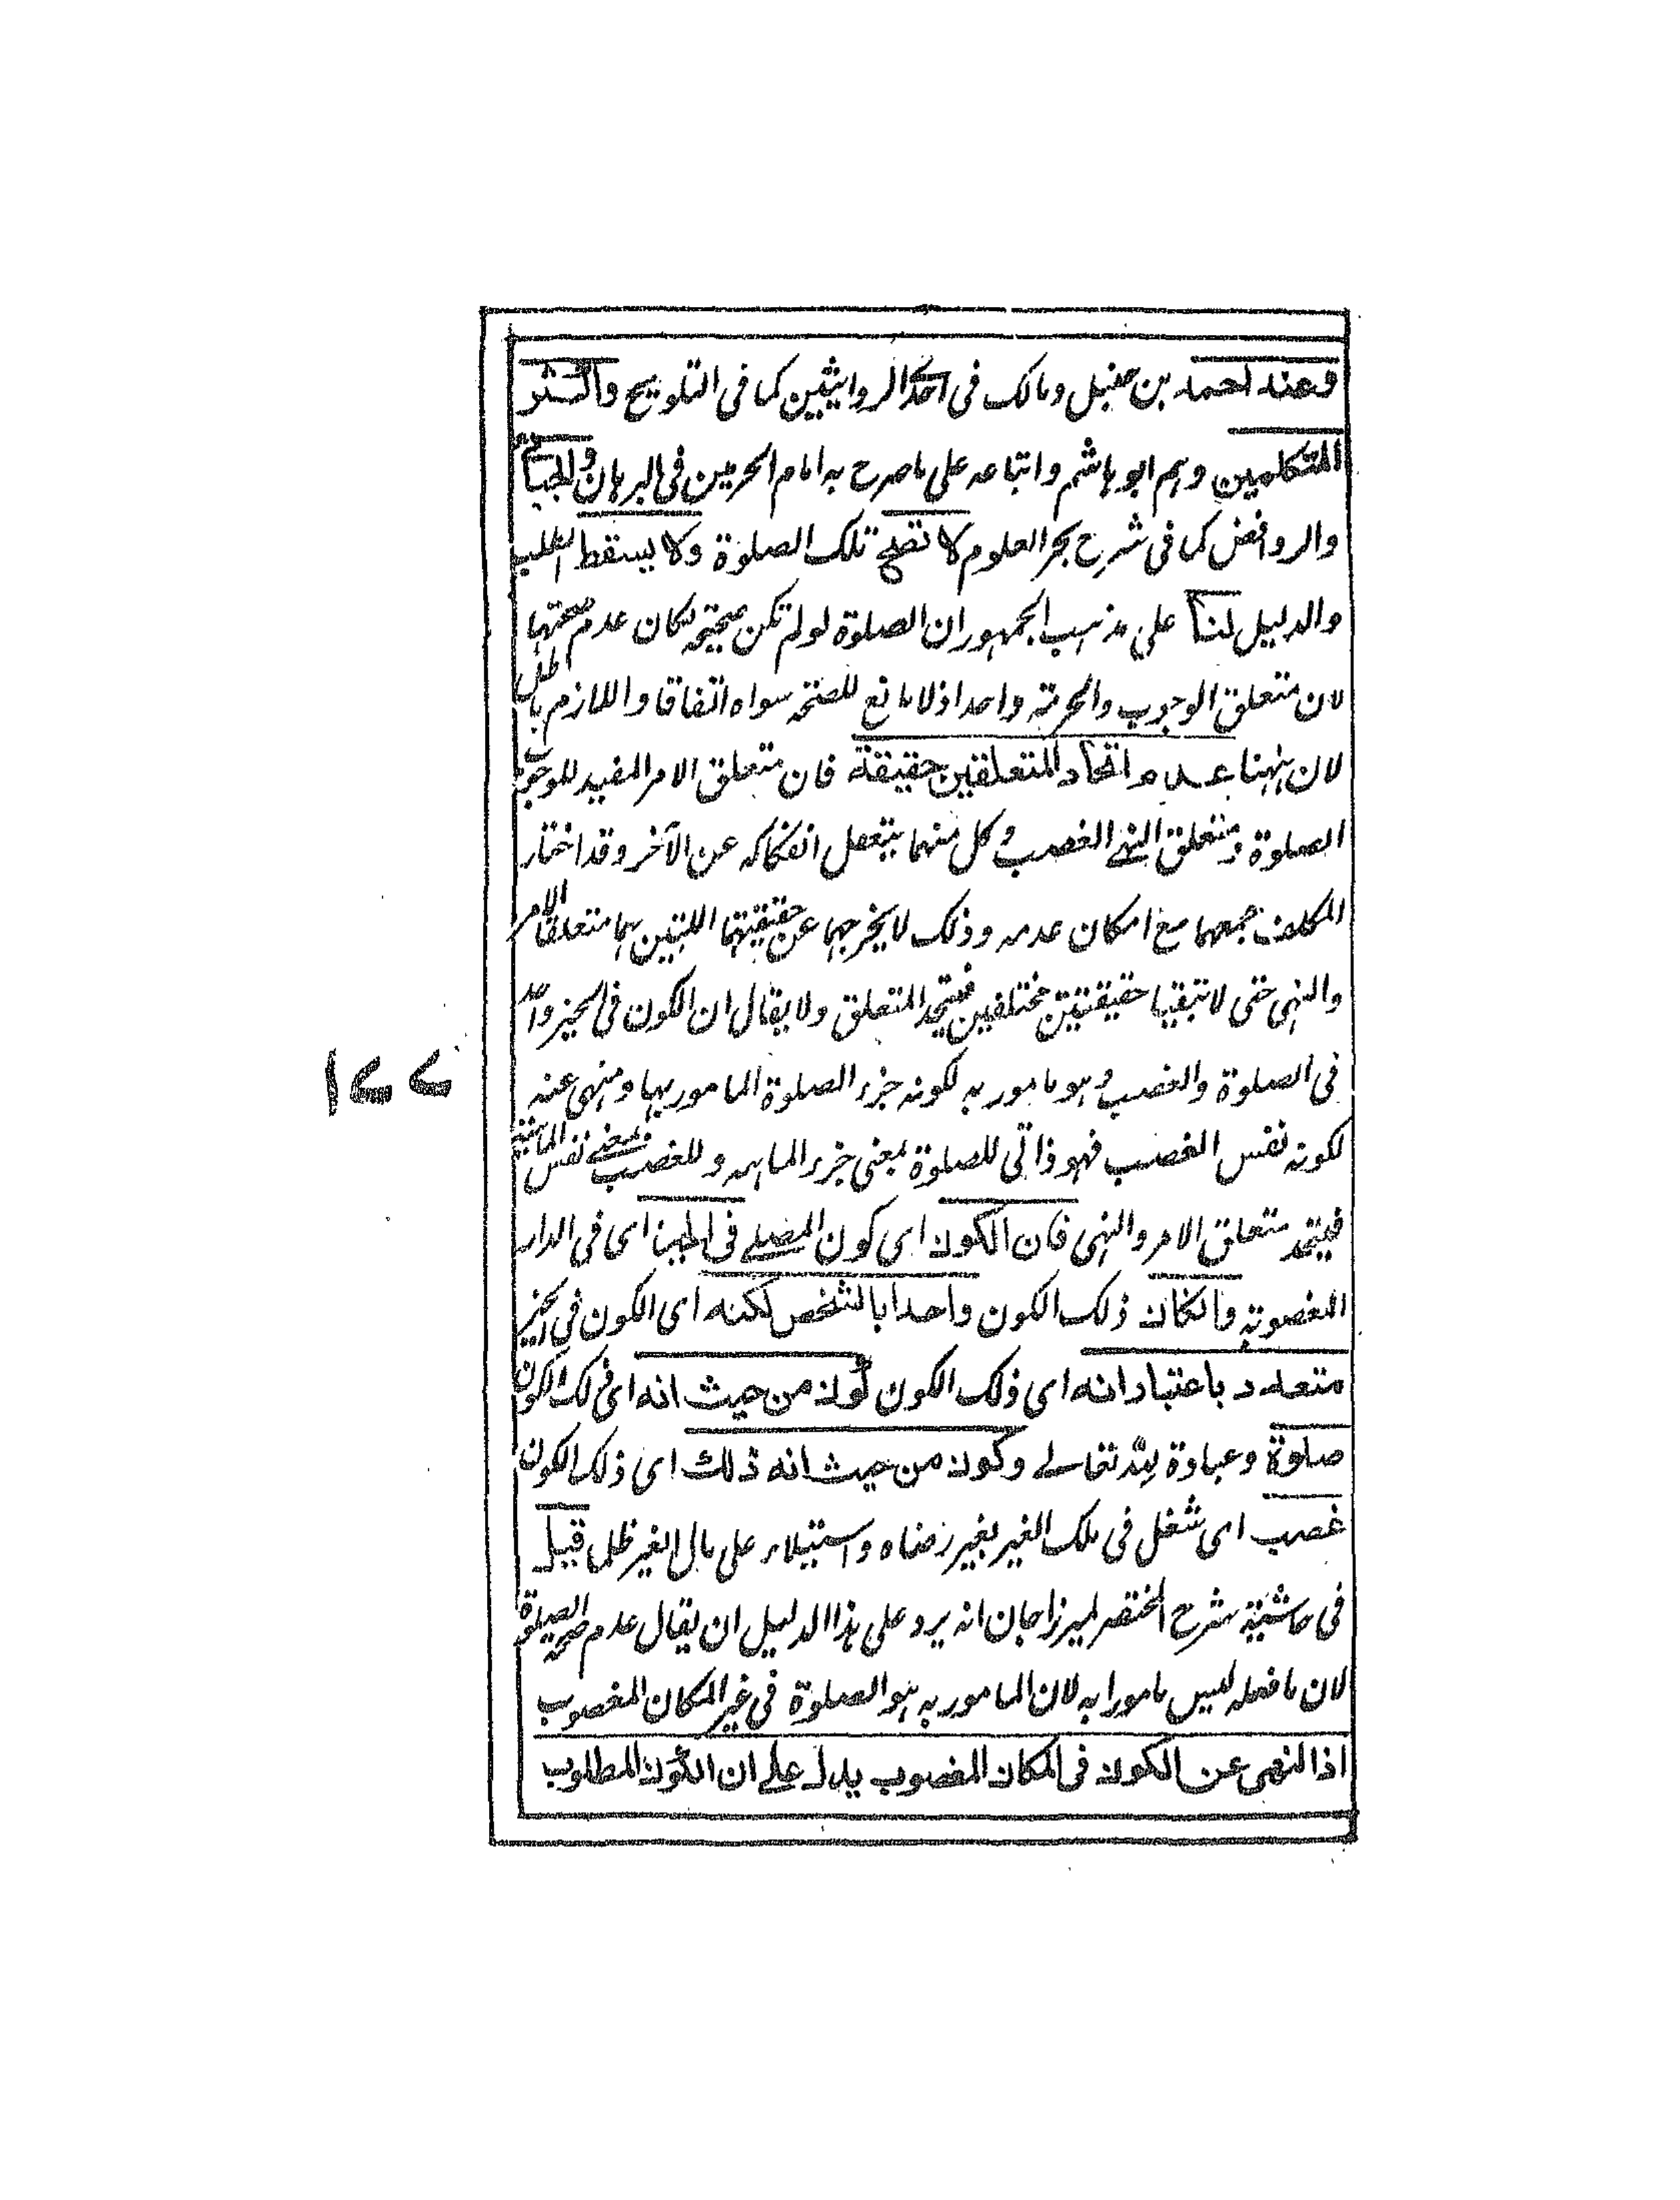 وعند احمد بن حنبل ومالک فی احدی الروایتین کما فی التلویح واکثر
المتکلمین وہم ابو ہاشم واتباعہ علی ما صرح بہ امام الحرمین فی البرہان والجبائی
والروافض کما فی شرح بحر العلوم لا تصح تلک الصلوۃ ولا یسقط الطلب
والدلیل لنا علی مذہب الجمہور ان الصلوۃ لو لم تکن صحیحۃ لکان عدم صحتہا
لان متعلق الوجوب والحرمۃ واحد اذ لا مانع للصحۃ سواہ اتفاقا واللازم باطل
لان ہہنا عدم اتحاد المتعلقین حقیقۃ فان متعلق الامر المفید للوجوب
الصلوۃ ومتعلق النہی الغصب وکل منہما یتعقل انفکاکہ عن الآخر وقد اختار
المکلف جمعہما مع امکان عدمہ وذلک لا یخرجہما عن حقیقتیہما اللتین ہما متعلقا الامر
والنہی حتی لا تبقیا حقیقتین مختلفین فیتحد المتعلق ولا یقال ان الکون فی الحیز واحد
فی الصلوۃ والغصب وہو مامور بہ لکونہ جزء الصلوۃ المامور بہا ومنہی عنہ
لکونہ نفس الغصب فہو ذاتی للصلوۃ بمعنی جزء الماہیۃ وللغصب بمعنی نفس الماہیۃ
فیتحد متعلق الامر والنہی فان الکون ای کون المصلی فی الحیز ای فی الدار
المغصوبۃ وان کان ذلک الکون واحدا بالشخص لکنہ ای الکون فی الحیز
متعدد باعتبار انہ ای ذلک الکون کون من حیث انہ ای ذلک الکون
صلوۃ وعبادۃ للہ تعالی وکون من حیث انہ ذلک ای ذلک الکون
غصب ای شغل فی ملک الغیر بغیر رضاہ واستیلاء علی مال الغیر ظلما قیل
فی حاشیۃ شرح المختصر لمیرزا جان انہ یرد علی ہذا الدلیل ان یقال عدم صحۃ الصلوۃ
لان ما فعلہ لیس مامورا بہ لان المامور بہ ہو الصلوۃ فی غیر المکان المغصوب
اذ النهی عن الکون فی المکان المغصوب یدل علی ان الکون المطلوب
۱۲۲